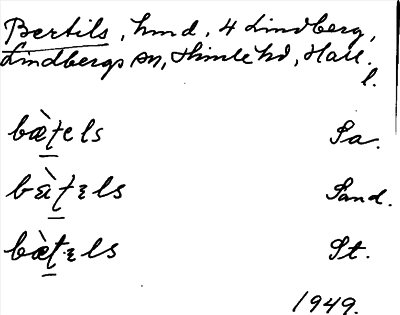 Bertils, hmd, 4 Lindberg,
Lindbergs sn, Himle hd, Hall.
l.
bæ̀ṯels Sa.
bæ̀ṯɛls Sand.
bæ̀ṯɛls St.
1949.